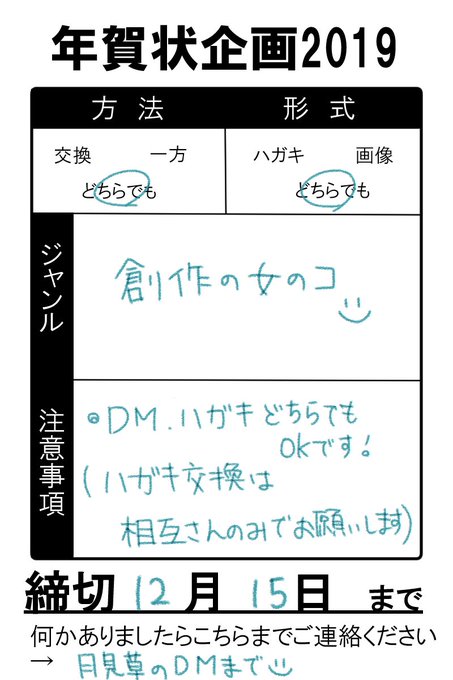 年賀状企画2019
方法 形式
交換 一方 ハガキ 画像
どちらでも どちらでも
ジャンル
創作の女のコ
注意事項
DM.ハガキどちらでも
OKです!
(ハガキ交換は
相互さんのみでお願いします)
締切 12月 15日 まで
何かありましたらこちらまでご連絡ください
→ 月見草のDMまで